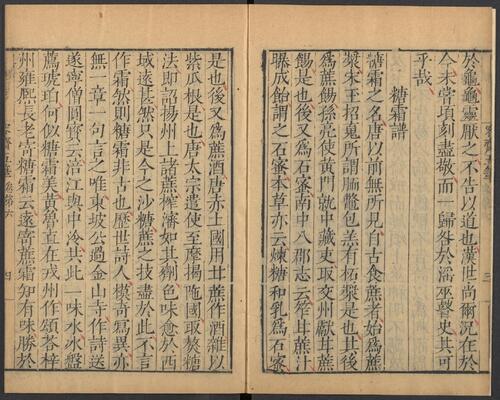 於龜龜靈厭之不告以道也漢世尚爾況在於
今未嘗頃刻盡敬而一歸咎於淫巫瞽史其可
乎哉
糖霜譜
糖霜之名唐以前無所見自古食蔗者始爲蔗
漿宋玉招䰟所謂胹鼈炰羔有柘漿是也其後
爲蔗餳孫亮使黃門就中藏吏取交州獻甘蔗
餳是也後又爲石蜜南中八郡志云笮甘蔗汁
曝成飴謂之石蜜本草亦云煉糖和乳爲石蜜
是也後又爲蔗酒唐赤土國用甘蔗作酒雜以
紫瓜根是也唐太宗遣使至摩揭陁國取熬糖
法即詔揚州上諸蔗榨瀋如其劑色味愈於西
域遠甚然只是今之沙糖蔗之技盡於此不言
作霜然則糖霜非古也歷世詩人模奇寫異亦
無一章一句言之唯東坡公過金山寺作詩送
遂寧僧圓寶云涪江與中泠共此一味水冰盤
薦琥珀何似糖霜美黃魯直在戎州作頌荅梓
州雍熙長老寄糖霜云遠寄蔗霜知有味勝於
三
四